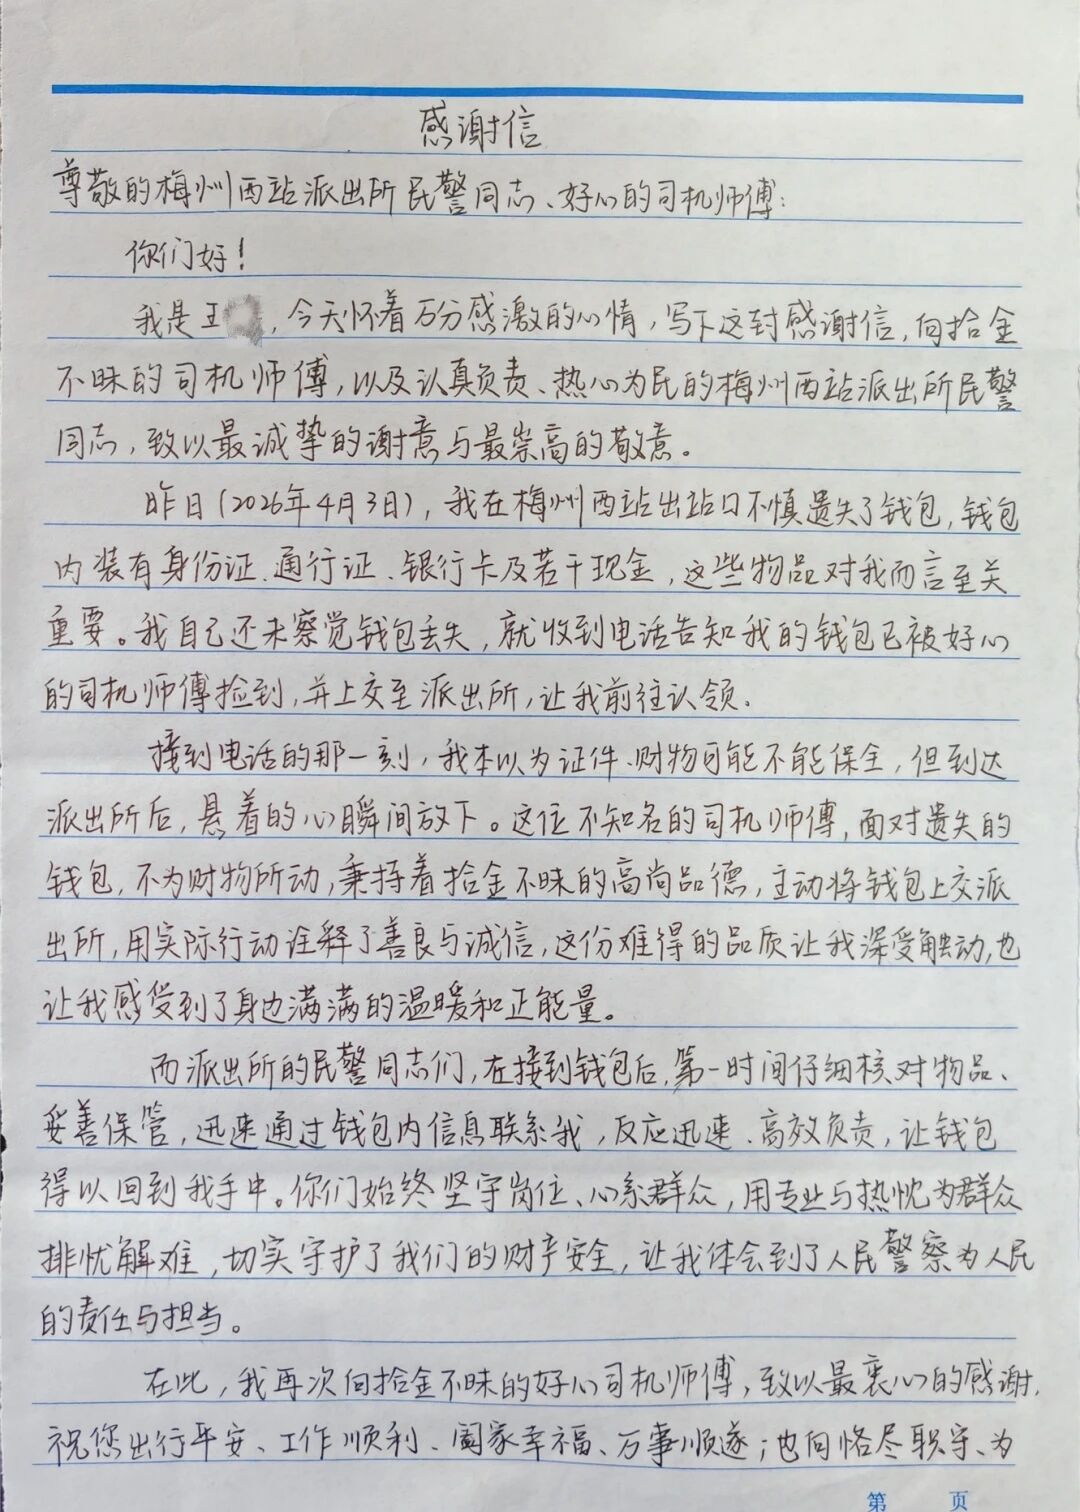 感谢信
尊敬的梅州西站派出所民警同志、好心的司机师傅:
你们好!
我是王，今天怀着万分感激的心情，写下这封感谢信，向拾金
不昧的司机师傅，以及认真负责、热心为民的梅州西站派出所民警
同志，致以最诚挚的谢意与最崇高的敬意。
昨日(2026年4月3日)，我在梅州西站出站口不慎遗失了钱包，钱包
内装有身份证、通行证、银行卡及若干现金，这些物品对我而言至关
重要。我自己还未察觉钱包丢失，就收到电话告知我的钱包已被好心
的司机师傅捡到，并上交至派出所，让我前往认领.
接到电话的那一刻，我本以为证件、财物可能不能保全，但到达
派出所后，悬着的心瞬间放下。这位不知名的司机师傅，面对遗失的
钱包，不为财物所动，秉持着拾金不昧的高尚品德，主动将钱包上交派
出所，用实际行动诠释了善良与诚信，这份难得的品质让我深受触动，也
让我感受到了身边满满的温暖和正能量。
而派出所的民警同志们，在接到钱包后，第一时间仔细核对物品、
妥善保管，迅速通过钱包内信息联系我，反应迅速、高效负责，让钱包
得以回到我手中。你们始终坚守岗位、心系群众，用专业与热忱为群众
排忧解难，切实守护了我们的财产安全，让我体会到了人民警察为人民
的责任与担当。
在此，我再次向拾金不昧的好心司机师傅，致以最衷心的感谢，
祝您出行平安、工作顺利、阖家幸福、万事顺遂；也向恪尽职守、为
第 页